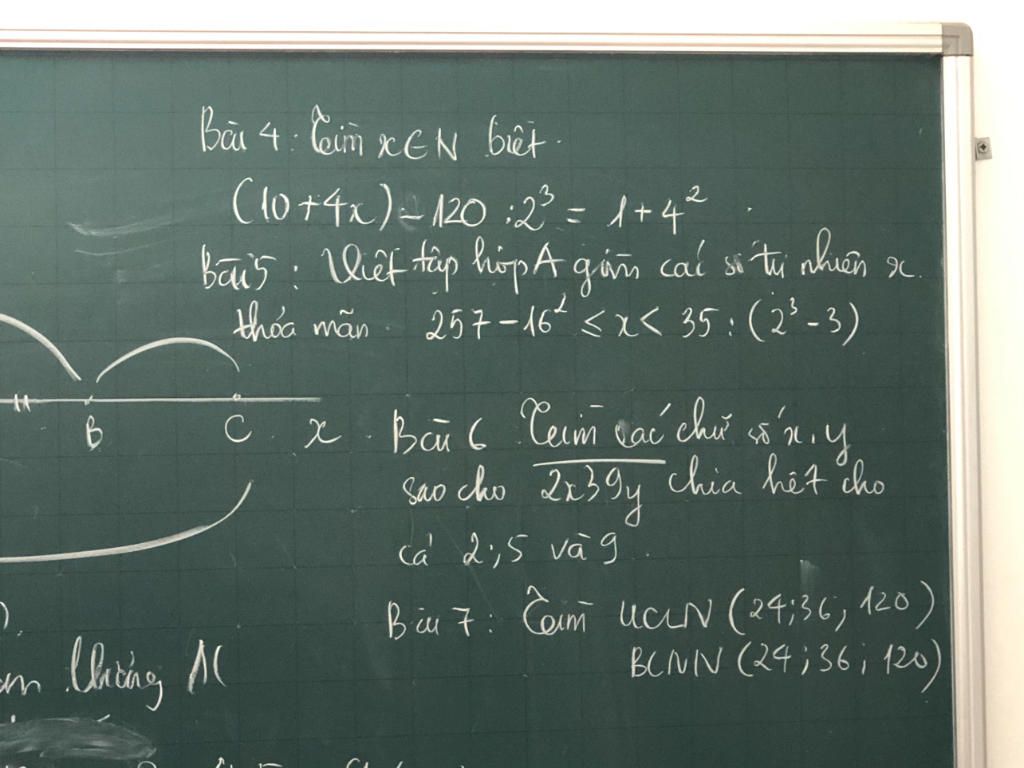 Bài 4: Tìm x∈N biết.
(10+4x) - 120 : 2³ = 1 + 4².
Bài 5: Viết tập hợp A gồm các số tự nhiên x.
thỏa mãn 257 - 16² ≤ x < 35 : (2³ - 3)
B C x
Bài 6 Tìm các chữ số x, y
sao cho 2x39y chia hết cho
cả 2; 5 và 9.
Bài 7: Tìm ƯCLN (24; 36; 120)
BCNN (24; 36; 120)